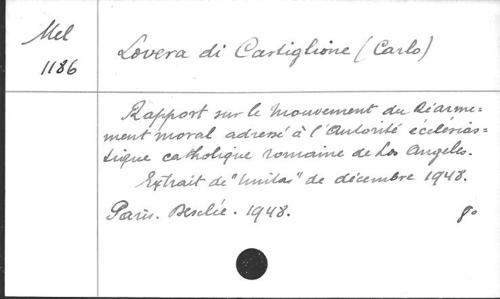 Mel
1186
Lovera di Castiglione (Carlo)
Rapport sur le Mouvement du Réarme=
ment moral adressé à l'Autorité ecclésias=
tique catholique romaine de Los Angeles.
Extrait de "Unitas" de décembre 1948.
Paris. Desclée. 1948. 8°